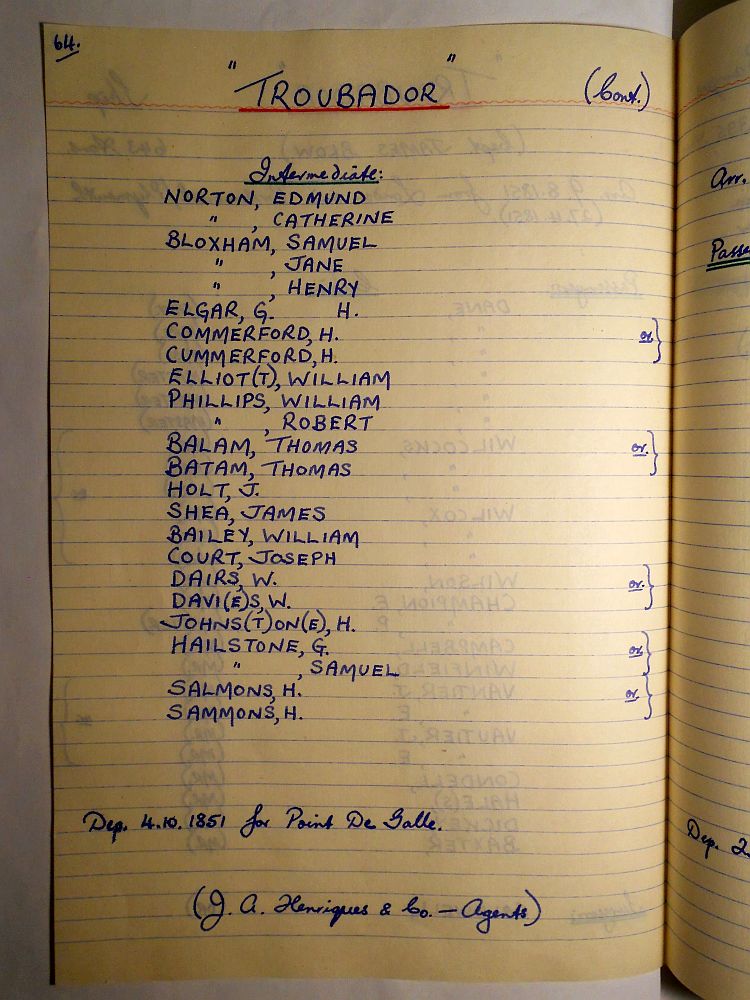 64.
"TROUBADOR" (Cont.)
Intermediate:
NORTON, EDMUND
" , CATHERINE
BLOXHAM, SAMUEL
" , JANE
" , HENRY
ELGAR, G. H.
COMMERFORD, H. or }
CUMMERFORD, H.
ELLIOT(T), WILLIAM
PHILLIPS, WILLIAM
" , ROBERT
BALAM, THOMAS or }
BATAM, THOMAS
HOLT, J.
SHEA, JAMES
BAILEY, WILLIAM
COURT, JOSEPH
DAIRS, W. or }
DAVI(E)S, W.
JOHNS(T)ON(E), H.
HAILSTONE, G. or }
" , SAMUEL
SALMONS, H. or }
SAMMONS, H.
Dep. 4.10.1851 for Point De Galle.
(J. A. Henriques & Co. — Agents)
Arr.
Passe
Dep. 2